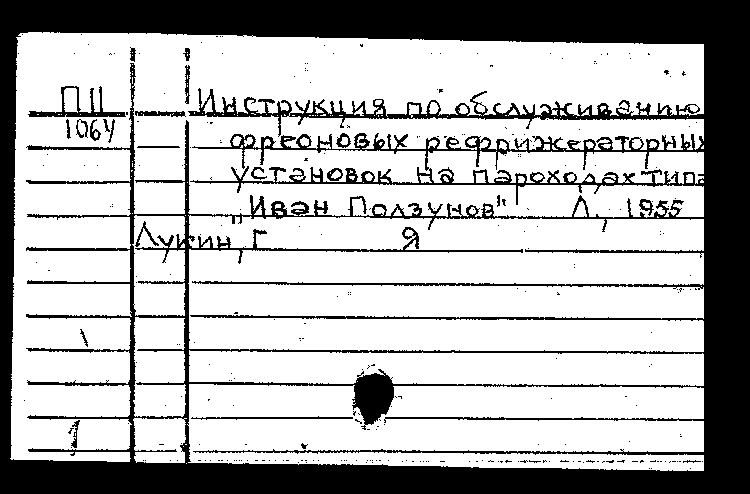 П II Инструкция по обслуживанию
1064 фреоновых рефрижераторных
установок на пароходах типа
„Иван Ползунов" Л., 1955
Лукин, Г Я